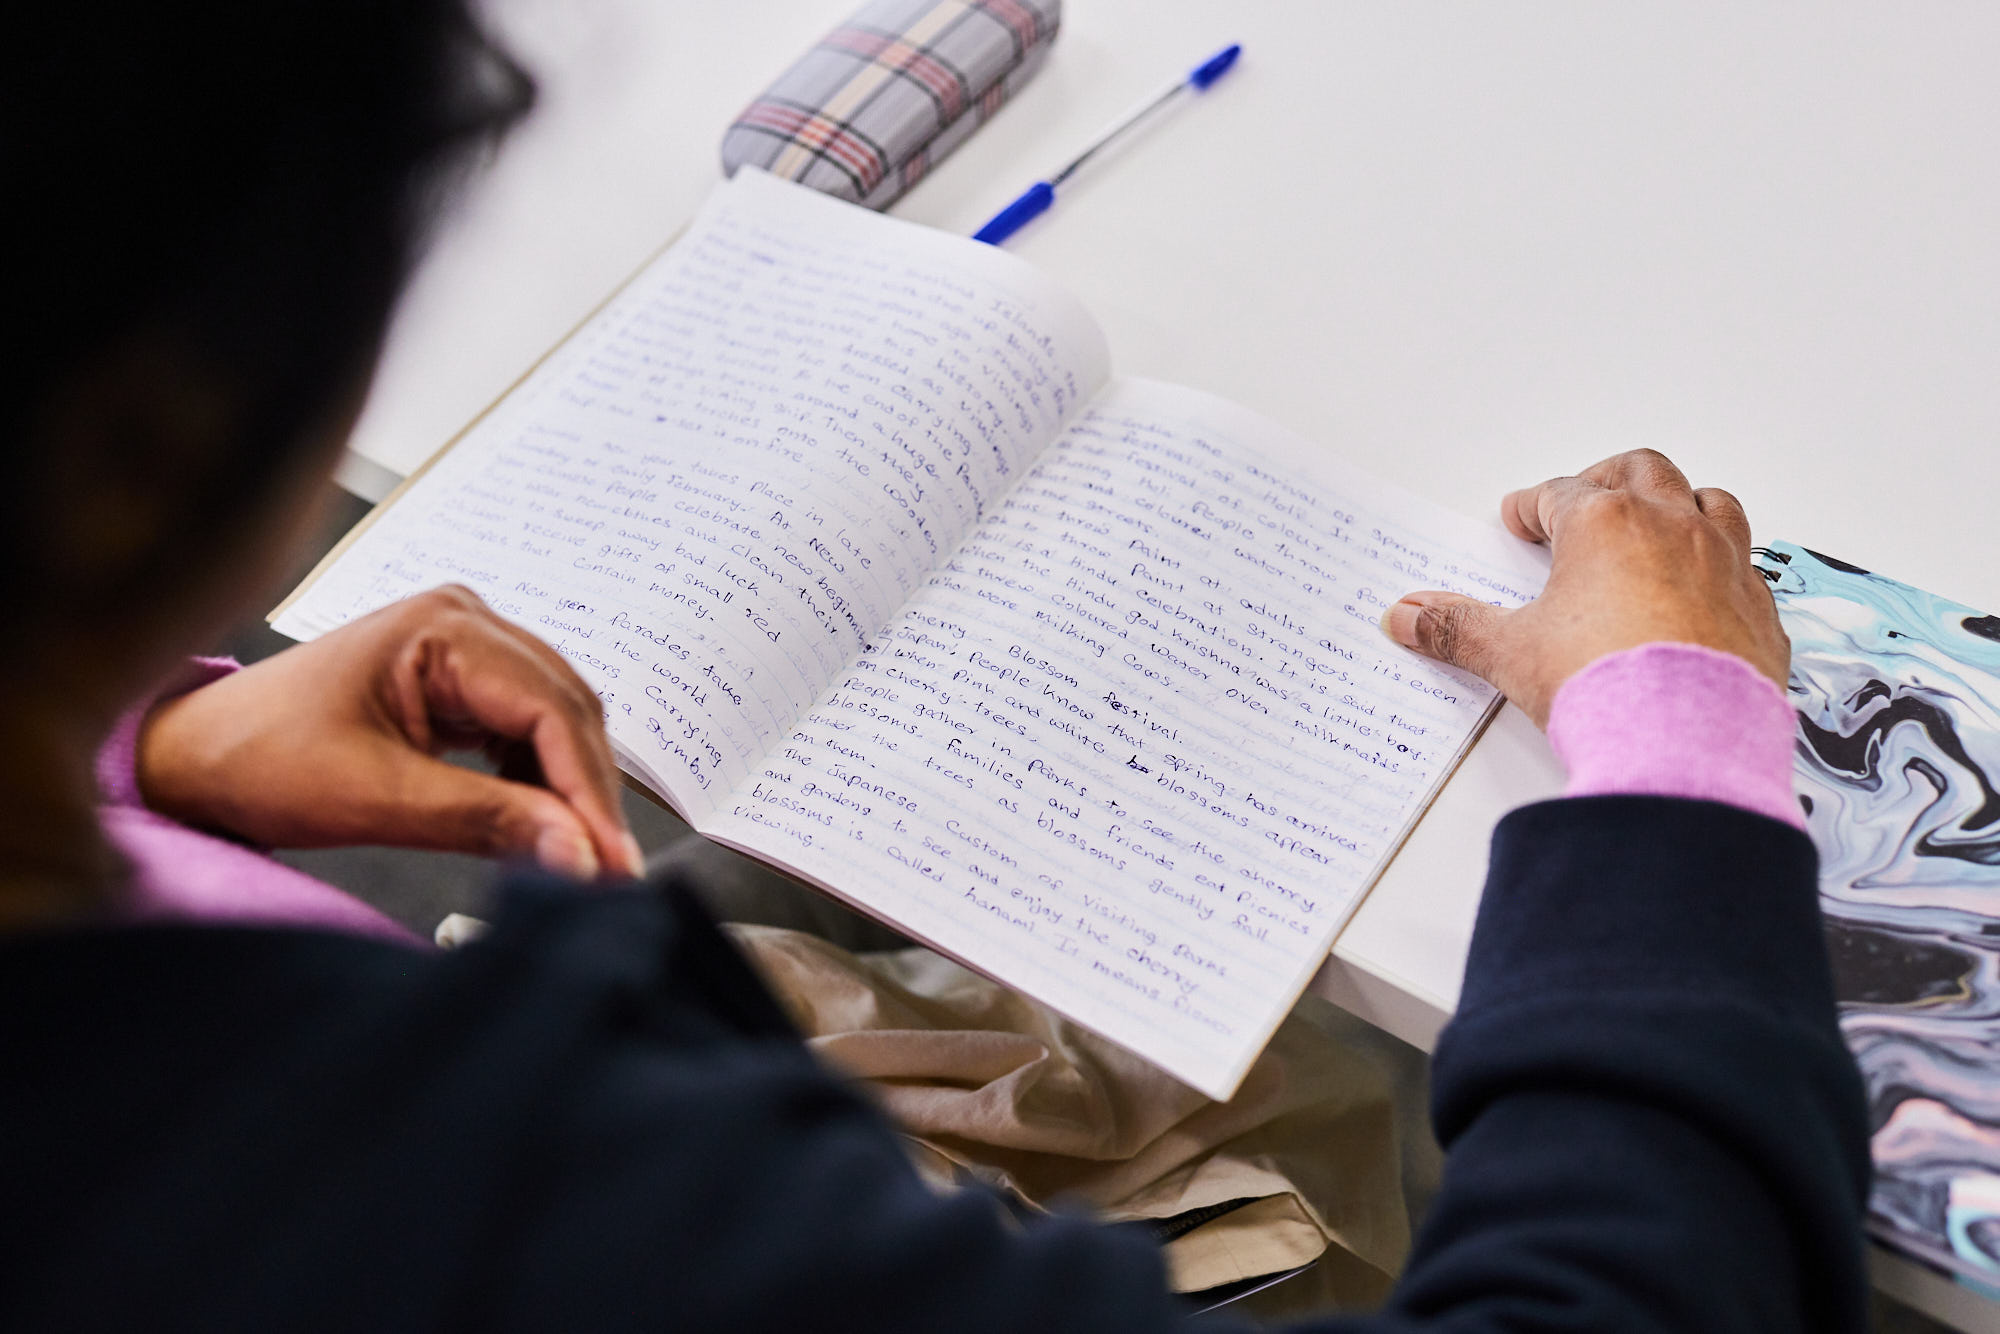 Shetland Islands, the
Up Helly
years ago, these
home to vikings
this history.
of people dressed as vikings
through the town carrying
At the end of the Parade
march around a huge
model of a viking ship. Then they
their torches onto the wooden
Ship and set it on fire.
new year takes place in late
January or early February. At New
Year Chinese People celebrate new beginnings
They wear new clothes and clean their
homes to sweep away bad luck.
children receive gifts of small red
envelopes that contain money.
The Chinese New year Parades take
Place cities around the world.
dancers Carrying
is a symbol
In India the arrival of spring is celebrat
festival of Holi. It is also known
festival of colour.
During Holi People throw Pow
and coloured water at eac
in the streets.
kids throw Paint at adults and it's even
ok to throw Paint at strangers.
Holi is a Hindu celebration. It is said that
when the Hindu god Krishna was a little boy.
he threw coloured water over milkmaids
who were milking cows.
cherry - Blossom festival.
In Japan, People know that spring has arrived
when Pink and white blossoms appear
on cherry-trees.
People gather in Parks to see the cherry
blossoms. families and friends eat Picnics
under the trees as blossoms gently fall
on them.
The Japanese Custom of visiting Parks
and gardens to see and enjoy the cherry
blossoms is called hanami It means flower
viewing.